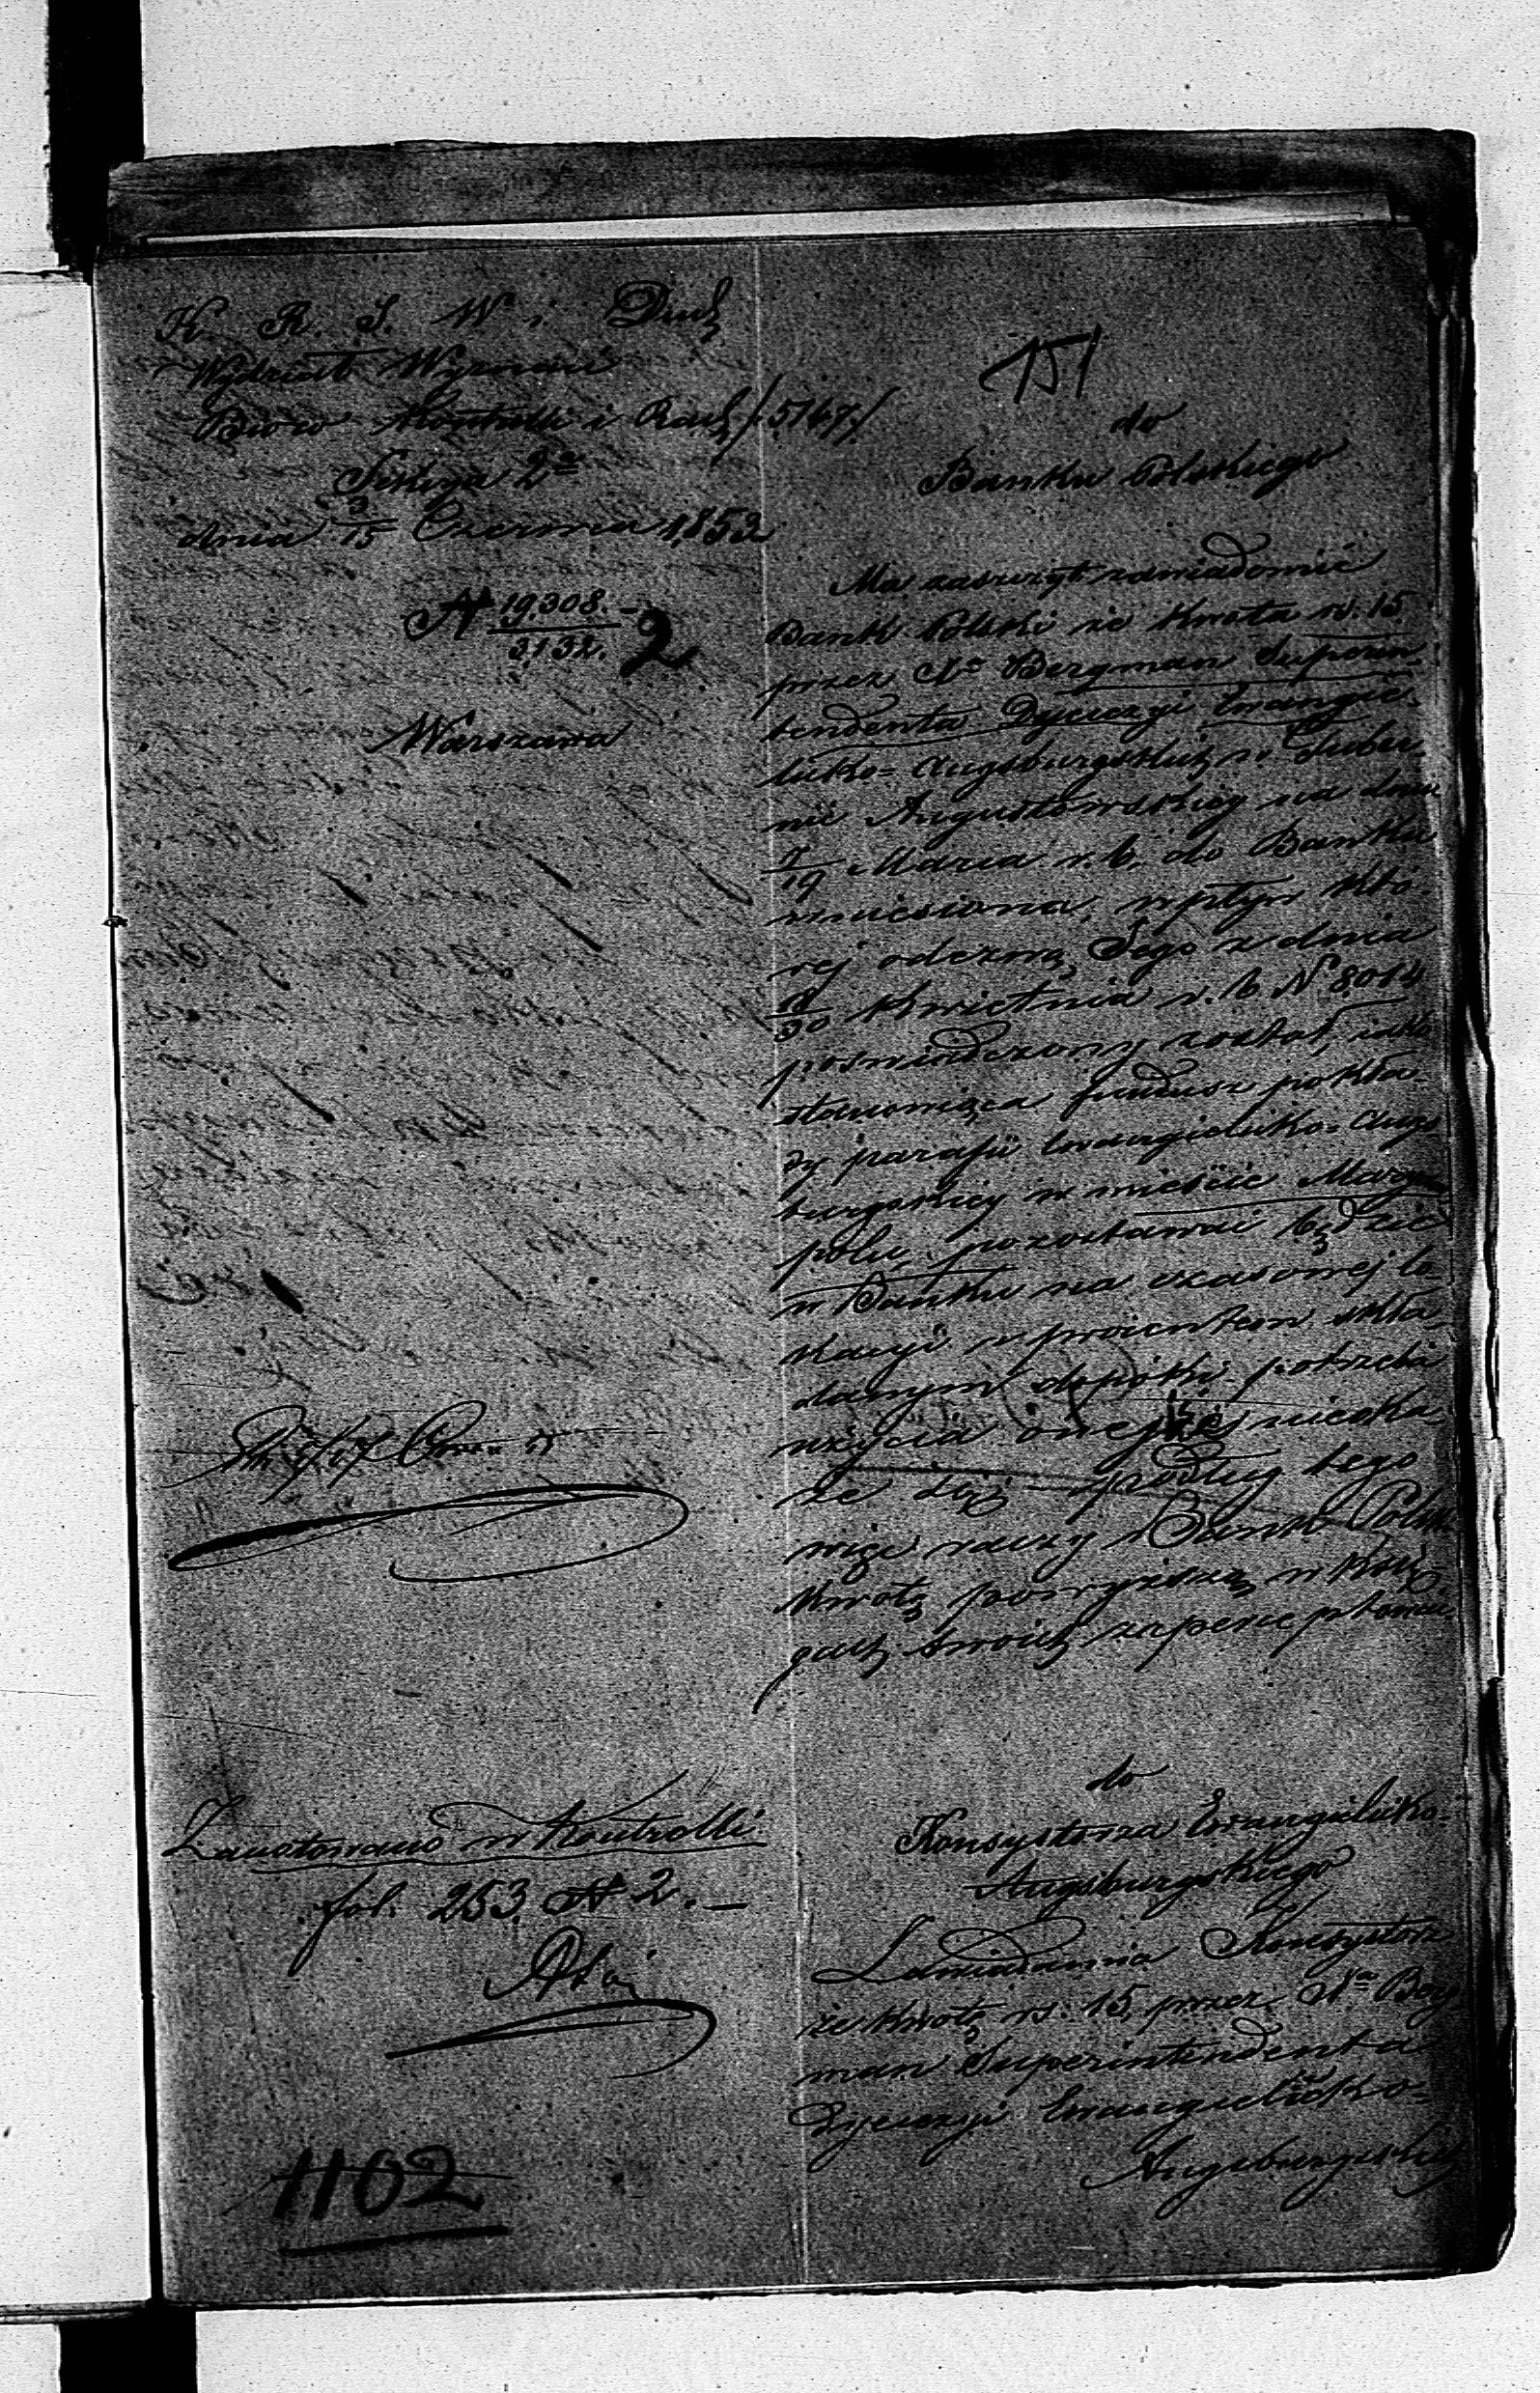 K. R. S. W. i Duch
Wydział Wyznań
Biuro Kontrolli i Rach /5167/
Sekcya 2a
dnia 3/15 Czerwca 1853
N 19.308. / 3132. 2
Warszawa
Zanotowano w Kontrolli
fol. 253 N 2.
1102
151
do
Banku Polskiego
Ma zaszczyt zawiadomić
Bank Polski że kwota rs. 15
przez Bergman Superin-
tendenta Dyecezyi Ewangie-
licko-Augsburgskiej w Guber-
nii Augustowskiej na dniu
7/19 Marca r. b. do Banku
wniesiona, wpływ któ-
rej odezwą Jego z dnia
18/30 Kwietnia r. b. N 8014
poświadczony został, jako
stanowiąca fundusz pokła-
dy parafii Ewangielicko-Augs
burgskiej w mieście Maryam
polu, pozostawać będzie
w Banku na czasowej lo-
kacyi z procentem skła-
danym dopóki potrzeba
użycia onejże nieoka-
że się podług tego
więc raczy Bank Polski
kwotę powyższą w księ-
gach swoich
do
Konsystorza Ewangielicko-
Augsburgskiego
Zawiadamia Konsystorz
że kwotę rs. 15 przez Berg
man Superintendenta
Dyecezyi Ewangielicko-
Augsburgskiej